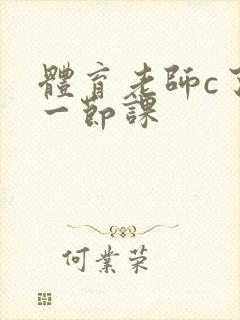 體育老師c了
一節課
何業荣